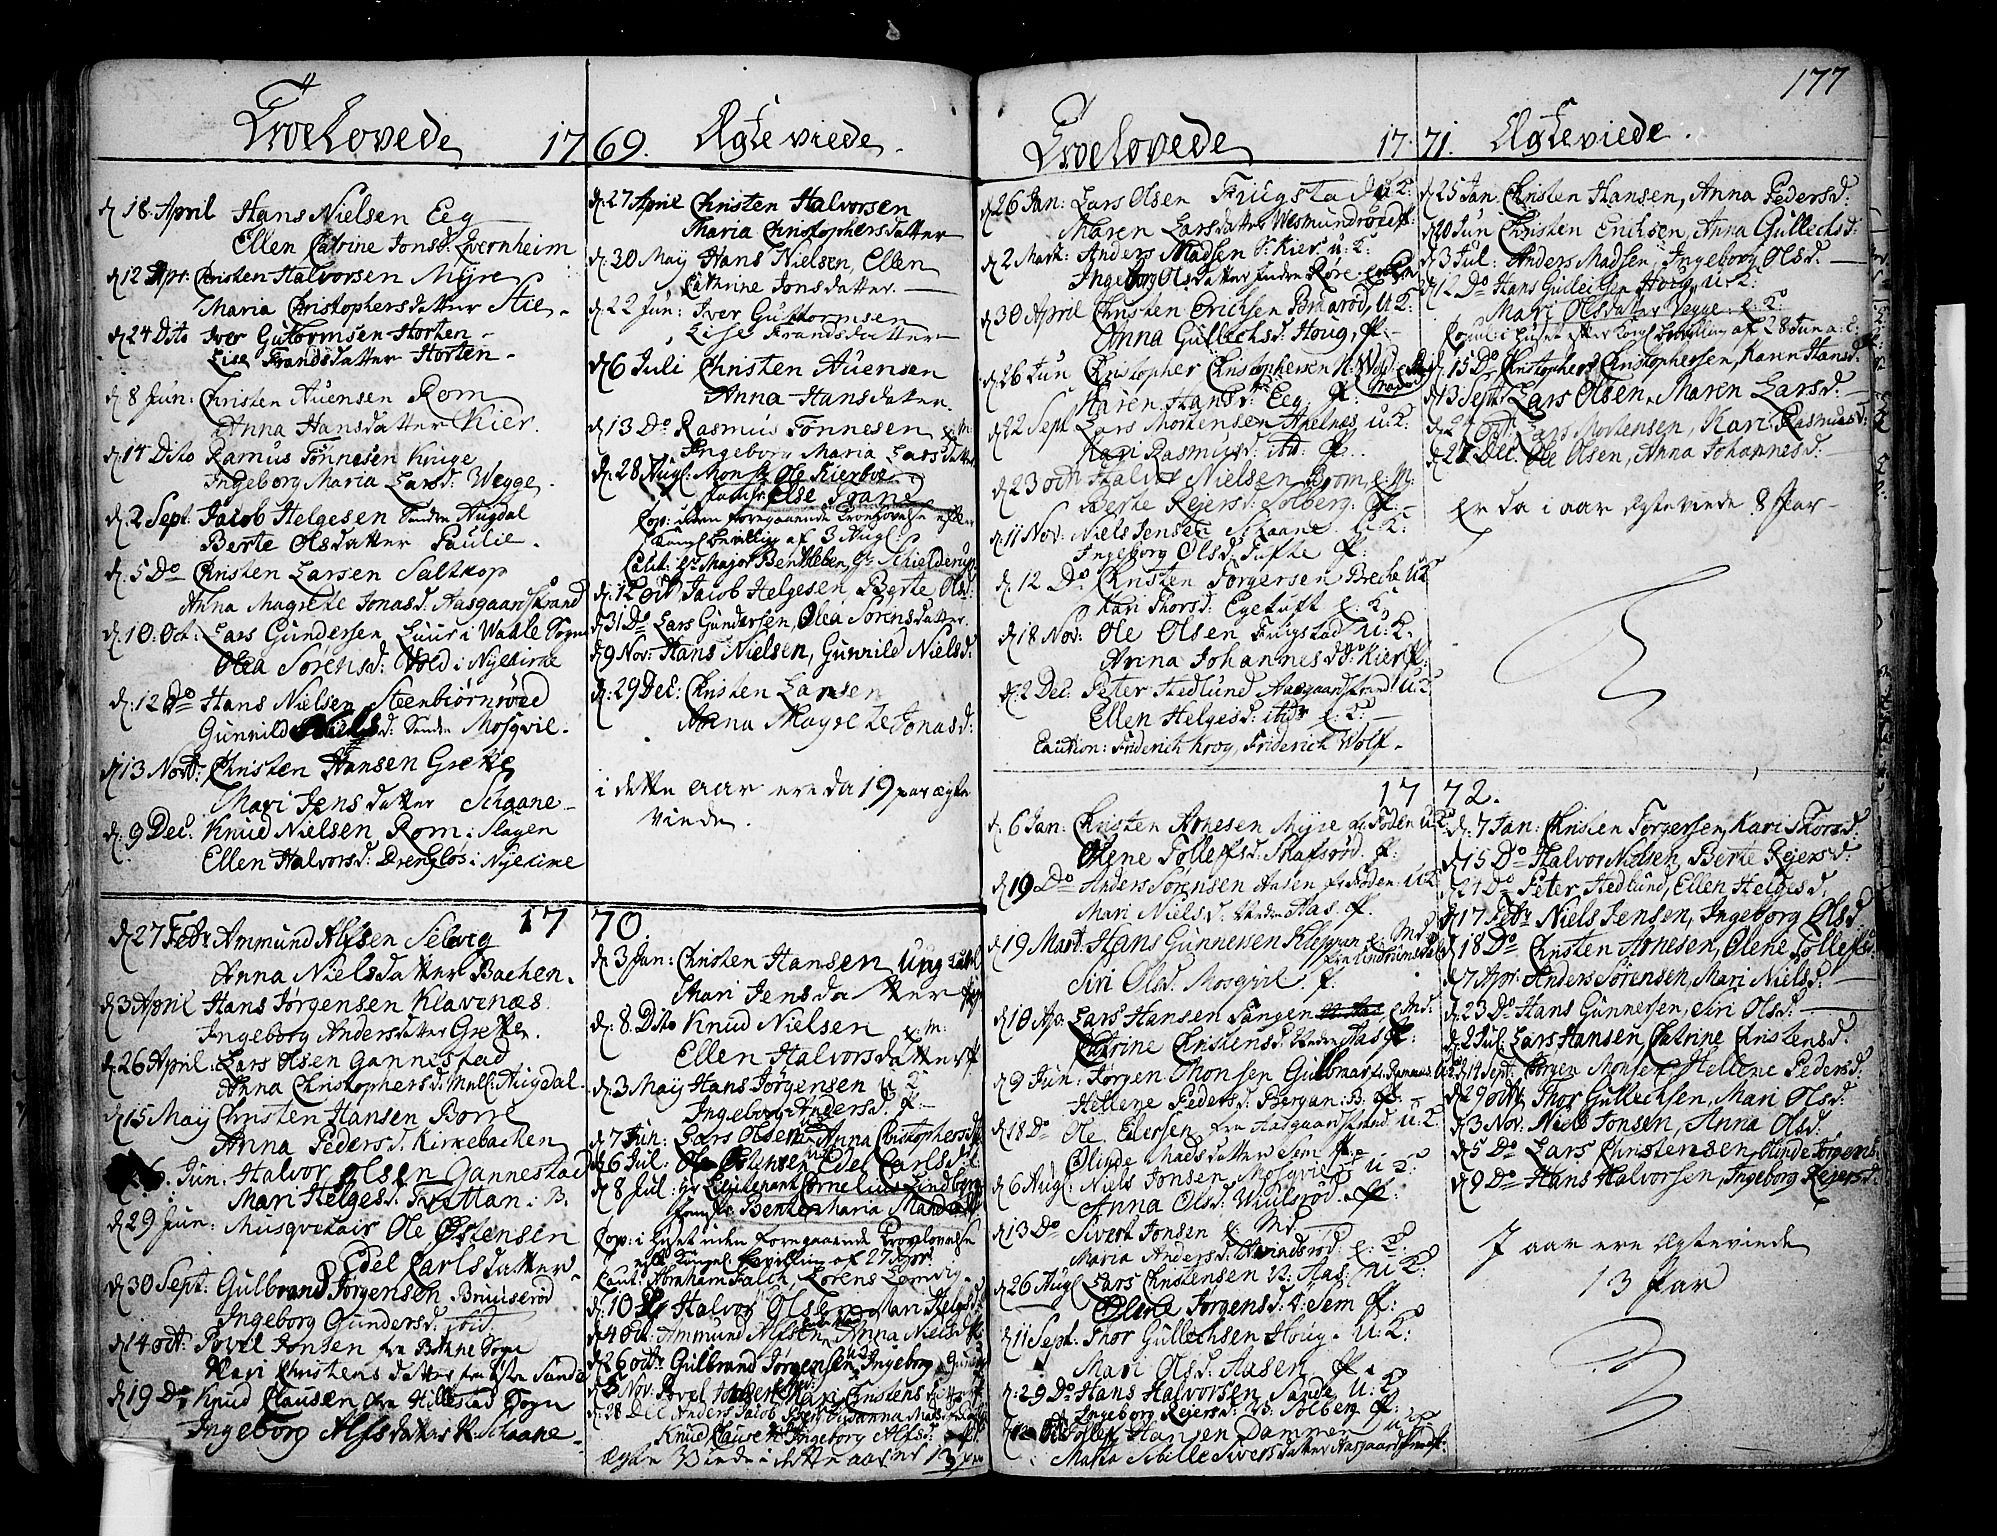 177
Troelovede 1769. Ægteviede
d. 18 April Hans Nielsen Eeg
Ellen Catrine Jonsd: Qvernheim
d. 12 Apr: Christen Halvorsen Myre
Maria Christophersdatter Stie.
d. 24 Dito Iver Gutormsen Horten
Lise Frandsdatter Horten.
d. 8 Jun: Christen Auensen Rom
Anna Hansdatter Kier.
d. 14 Dito Rasmus Tønnesen Knige
Ingeborg Maria Larsd: Wegge.
d. 2 Sept: Jacob Helgesen Søndre Augdal
Berte Olsdatter Paulie.
d. 5 Do Christen Larsen Saltkop
Anna Magrete Jonasd: Aasgaardstrand
d. 10. Oct: Lars Gundersen Luur i Waale Sogn
Olea Sørensd: Wold i Nykirke
d. 12 Do Hans Nielsen Steenbiørnrød
Gunnild Nielsd: Søndre Mosqvil.
d. 13 Novb: Christen Hansen Grette
Mari Jensdatter Schaane
d. 9 Dec. Knud Nielsen Rom i Slagen
Ellen Halvorsd: Drengløs i Nykirke
d. 27 April Christen Halvorsen
Maria Christophersdatter
d. 30 May Hans Nielsen, Ellen
Cathrine Jonsdatter.
d. 22 Jun: Iver Guttormsen
Lise Frandsdatter
d. 6 Juli Christen Auensen
Anna Hansdatter.
d. 13 Do Rasmus Tønnesen e: M:
Ingeborg Maria Larsdatter
d. 28 Aug: Monsr Ole Kierboe
Jomfr: Else Trane
Cop: uden foregaaende Troelovelse efter
Kongl: bevilling af 3 Aug:
Caut: Hr Major Bentzleben, Hr Schielderup
d. 12 Oct: Jacob Helgesen, Berte Olsd:
d. 31 Do Lars Gundersen, Olea Sørensdatter.
d. 9 Nov: Hans Nielsen, Gunnild Nielsd:
d. 29 Dec: Christen Larsen
Anna Magrete Jonasd:
i dette aar ere da 19 par ægte
viede.
1770
d. 27 Febr Ammund Alfsen Selvig
Anna Nielsdatter Bachen.
d. 3 April Hans Jørgensen Klavenæs
Ingeborg Andersdatter Grette.
d. 26 April: Lars Olsen Gannestad
Anna Christophersd: Mell: Augdal.
d. 15 May Christen Hansen Borre
Anna Pedersd. Kirkebachen
6. Jun. Halvor Olsen Gannestad
Mari Helgesd: Trettan: B.
d. 29 Jun: Musqvetair Ole Østensen
Edel Carlsdatter
d. 30 Sept: Gulbrand Jørgensen Bruuserød
Ingeborg Gundersd:
d. 14 oct: Povel Jonsen fra Botne Sogn
Mari Christensdatter fra Østre Sande
d. 19 Do Knud Clausen fra Hillestad Sogn
Ingeborg Alfsdatter N. Schaane
d. 3 Jan: Christen Hansen Ung karl
Mari Jensdatter
d. 8. Dito Knud Nielsen e: m:
Ellen Halvorsdatter
d. 3 May Hans Jørgensen u K
Ingeborg Andersd: P.
d. 7 Jun: Lars Olsen Anna Christophersd:
d. 6 Jul: Ole Østensen Edel Carlsd:
d. 8 Jul: Hr Lieutenant Cornelius Lindberg
Jomfr: Bente Maria
Cop: i Huset uden foregaaende Troelovelse
efter Kongel: bevilling af 27 Apr:
Caut: Abraham Falch, Lorens Lomvig
d. 10 Halvor Olsen, Mari Helgesd:
d. 4 Oct: Ammund Alfsen Anna Nielsd:
d. 26 octr Gulbrand Jørgensen, Ingeborg Gundersd:
d. 8 Nov: Povel Jonsen Mari Christensdatter
d. 28 Dec Anders Jacob Susanna Madsd:
Knud Clausen Ingeborg Alfsd:
ægte Viede i dette aar er 13 par
Troelovede 1771. Ægteviede.
d. 26 Jan: Lars Olsen Fuugstad u: K:
Maren Larsdatter Wesmundrød P.
d. 2 Mart: Anders Madsen S: Kier u: K:
Ingeborg Olsdatter Søndre Røre
d. 30 April Christen Erichsen Bruarød, U: K:
Anna Gullichsd: Houg, P.
d. 26 Jun Christopher Christophersen N: Wold
Karen Hansd: Eeg. P.
d. 22 Sept Lars Mortensen Apelnes, u: K:
Kari Rasmusd: itd: P.
d. 23 octr Halvor Nielsen Brom, e. M.
Berte Rejersd: Solberg. P.
d. 11 Nov: Niels Jensen Schaane. U: K:
Ingeborg Olsd: Tufte P:
d. 12 Do Christen Torgersen Breche U:K
Kari Thorsd: Egetuft e: K:
d. 18 Nov: Ole Olsen Fuugstad U: K.
Anna Johannesd: Kier P:
d. 2 Dec. Peter Hedlund Aasgaardstrand U: K
Ellen Helgesd: itidr e: K:
Caution: Friderich Krog, Friderich Wolf.
d. 25 Jan. Christen Hansen, Anna Pedersd:
d. 20 Jun Christen Erichsen, Anna Gullechsd:
d. 3 Jul: Anders Madsen, Ingeborg Olsd.
d. 12 Do Hans Gullichsen Houg, u: K:
Mari Olsdatter Vegge. e: K:
Copul: i Huset efter kongl: bevilling af 28 Jun: a: c:
d. 15 Do Christopher Christophersen, Karen Hansd:
d. 13 Sept: Lars Olsen, Maren Larsd.
d. 24 octr: Lars Mortensen, Kari Rasmusd:
d. 28 Dec. Ole Olsen, Anna Johannesd:
Er da i aar ægteviede 8 Par
1772.
d. 6 Jan: Christen Arnesen Myre af Foden u:K.
Olene Tollefsd: Skafsrød. P:
d. 19 Do Anders Sørensen Aasen fr Foden: U:K
Mari Nielsd. Nedre Aas. P.
d. 19 Mart: Hans Gunnersen Kleppan e: Md
Siri Olsd. Mosqvil. P.
d. 10 Ap: Lars Hansen Tangen e: Md:
Catrine Christensd: Nedre Aas P:
d. 9 Jun: Jørgen Monsen Gulbrar fr: Ramnes U:K
Hellene Pedersd: Bergan: B. P.
d. 18 Do Ole Edersen fra Aasgaardstrand U: K
Olinde Madsdatter Sem P:
d. 6 Aug: Niels Jonsen Mosqvil U: K:
Anna Olsd: Wuulsrød. P:
d. 13 Do Sivert Jonsen e: Md:
Maria Andersd: e: K:
d. 26 Aug: Lars Christensen N: Aas. U: K:
Olene Jørgensd: V: Sem P:
d. 11 Sept: Thor Gullechsen Houg. U: K:
Mari Olsd: Aasen P.
d: 29 Do Hans Halvorsen Sande U: K
Ingeborg Rejersd: W: Solberg P.
Tollef Hansen Dammen
Matta Sibille Siversdatter Aasgaardstrand
d. 7 Jan: Christen Torgersen, Kari Thorsd.
d. 15 Do Halvor Nielsen, Berte Rejersd:
d. 24 Do Peter Hedlund, Ellen Helgesd.
d. 17 Febr Niels Jensen, Ingeborg Olsd:
d. 18 Do Christen Arnesen, Olene Tollefsd:
d. 7 Apr: Anders Sørensen, Mari Nielsd:
d. 23 Do Hans Gunnersen, Siri Olsd:
d. 2 Jul: Lars Hansen, Catrine Christensd.
d. 14 Sept: Jørgen Monsen, Hellene Pedersd:
d. 29 octr Thor Gullechsen, Mari Olsd:
d. 3 Nov: Niels Jonsen, Anna Olsd:
d. 5 Do Lars Christensen, Jørgensd:
d. 9 Do Hans Halvorsen, Ingeborg Rejersd:
I aar ere Ægteviede
13 par